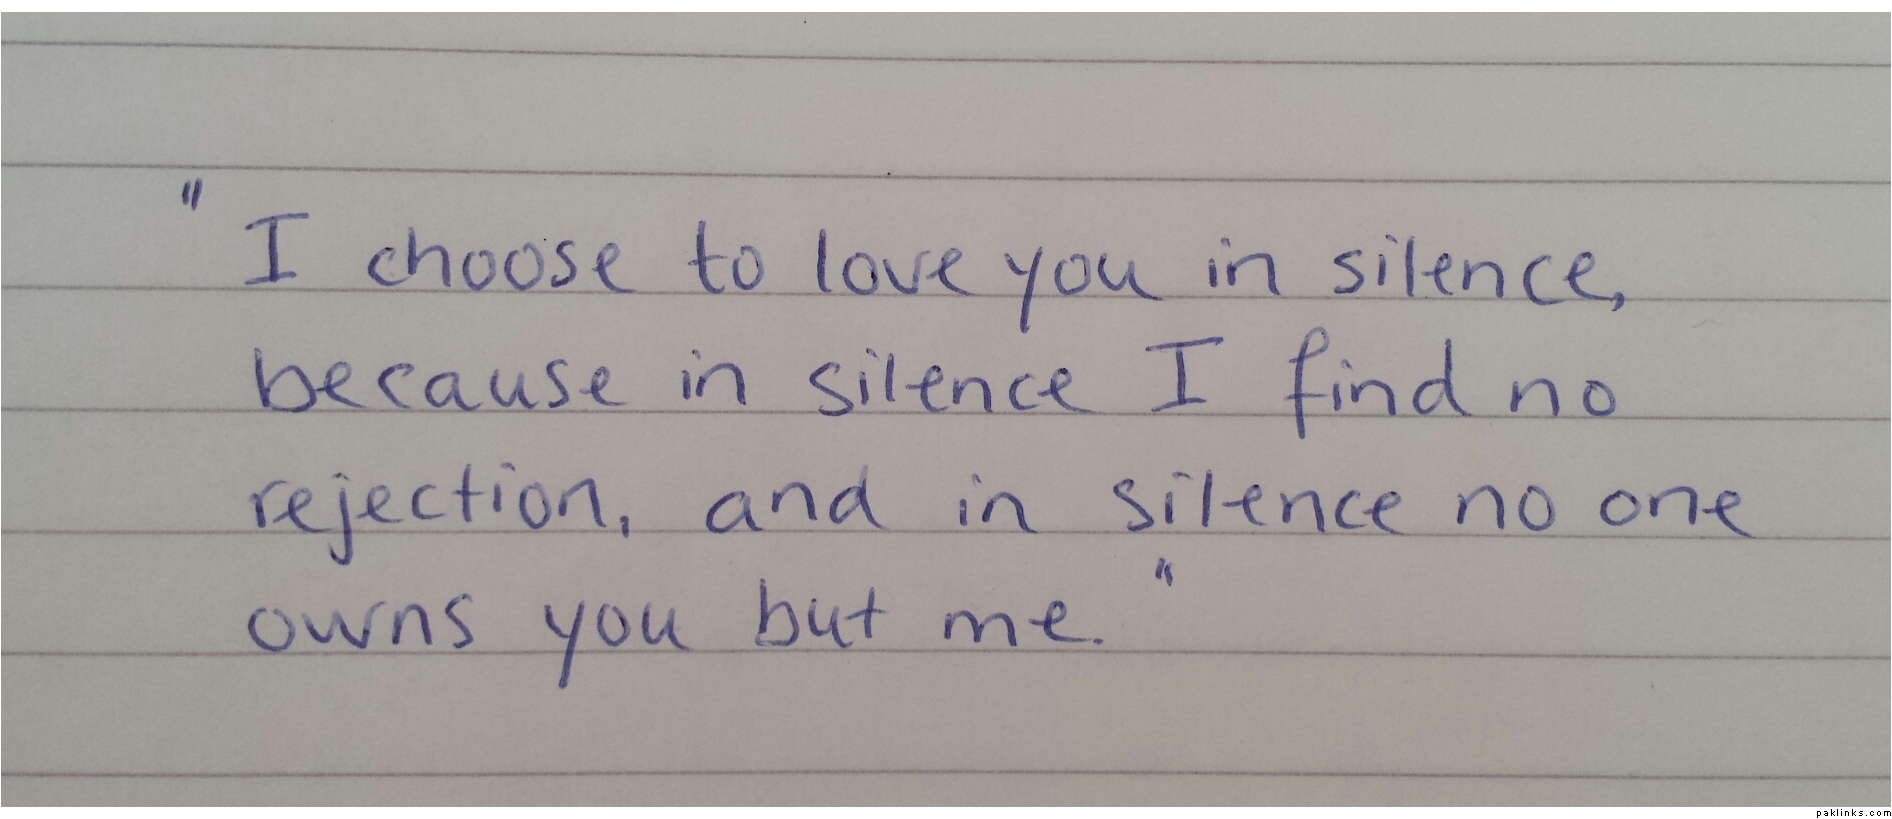 "I choose to love you in silence,
because in silence I find no
rejection, and in silence no one
owns you but me."
paklinks.com